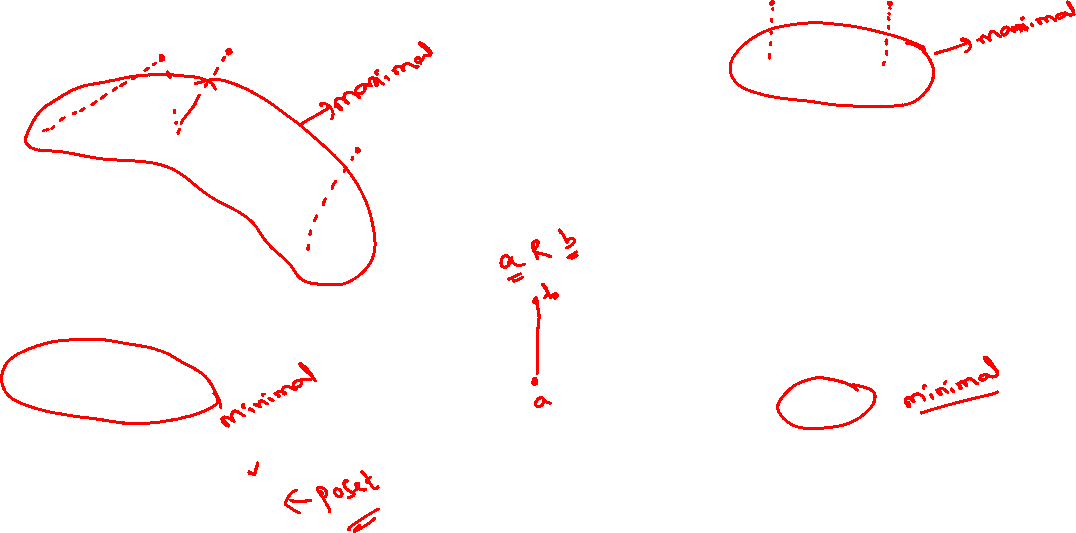 maximal
maximal
a R b
b
a
minimal
minimal
← poset